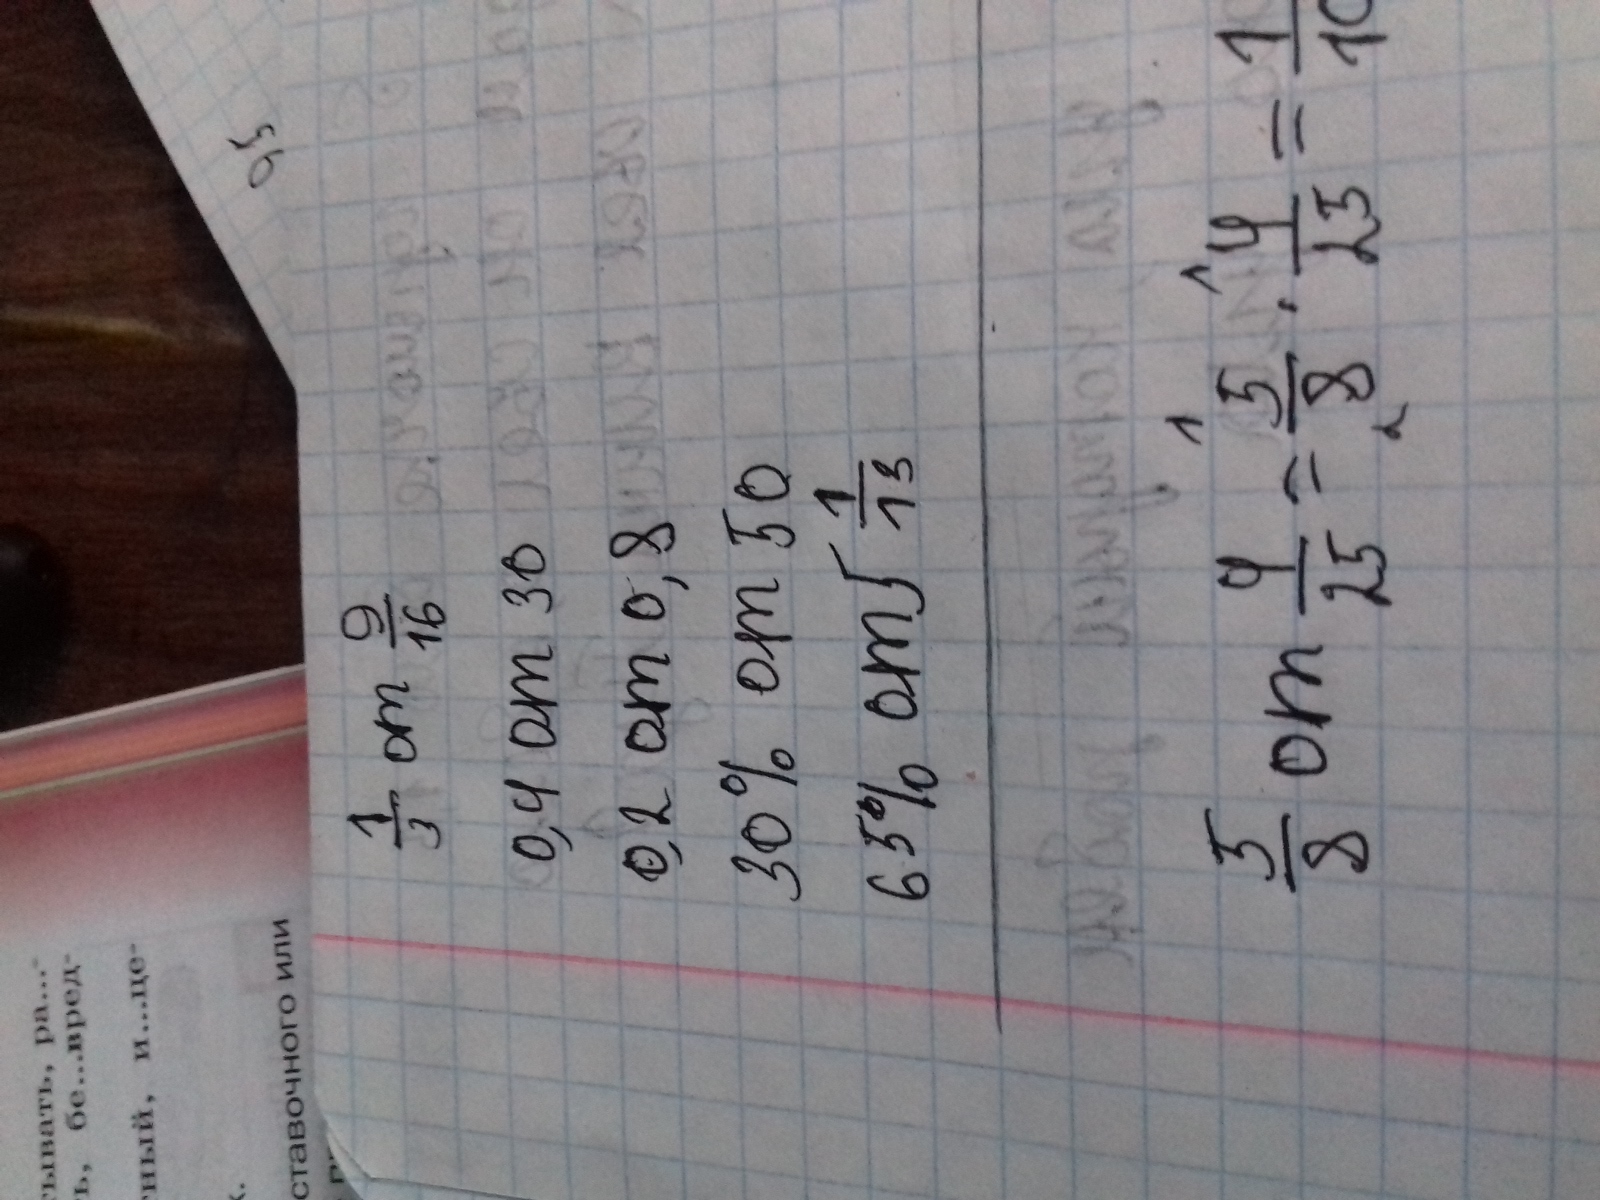 1/3 от 9/16
0,4 от 30
0,2 от 0,8
30% от 50
65% от 1/13
5/8 от 4/25 = 5/8 · 4/25 = 1/10
0,5
тывать, ра...-
ть, бе...вред-
тный, и...це-
ставочного или